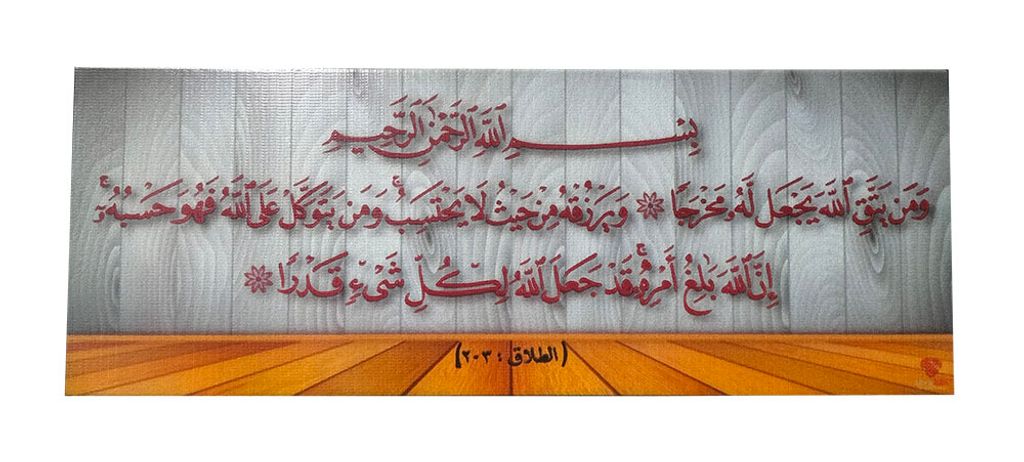 بِسْمِ ٱللَّهِ ٱلرَّحْمَٰنِ ٱلرَّحِيمِ
وَمَن يَتَّقِ ٱللَّهَ يَجْعَل لَّهُۥ مَخْرَجًا ۞ وَيَرْزُقْهُ مِنْ حَيْثُ لَا يَحْتَسِبُ ۚ وَمَن يَتَوَكَّلْ عَلَى ٱللَّهِ فَهُوَ حَسْبُهُۥٓ ۚ
إِنَّ ٱللَّهَ بَٰلِغُ أَمْرِهِۦ ۚ قَدْ جَعَلَ ٱللَّهُ لِكُلِّ شَىْءٍ قَدْرًا ۞
(الطلاق : ٢-٠٣)